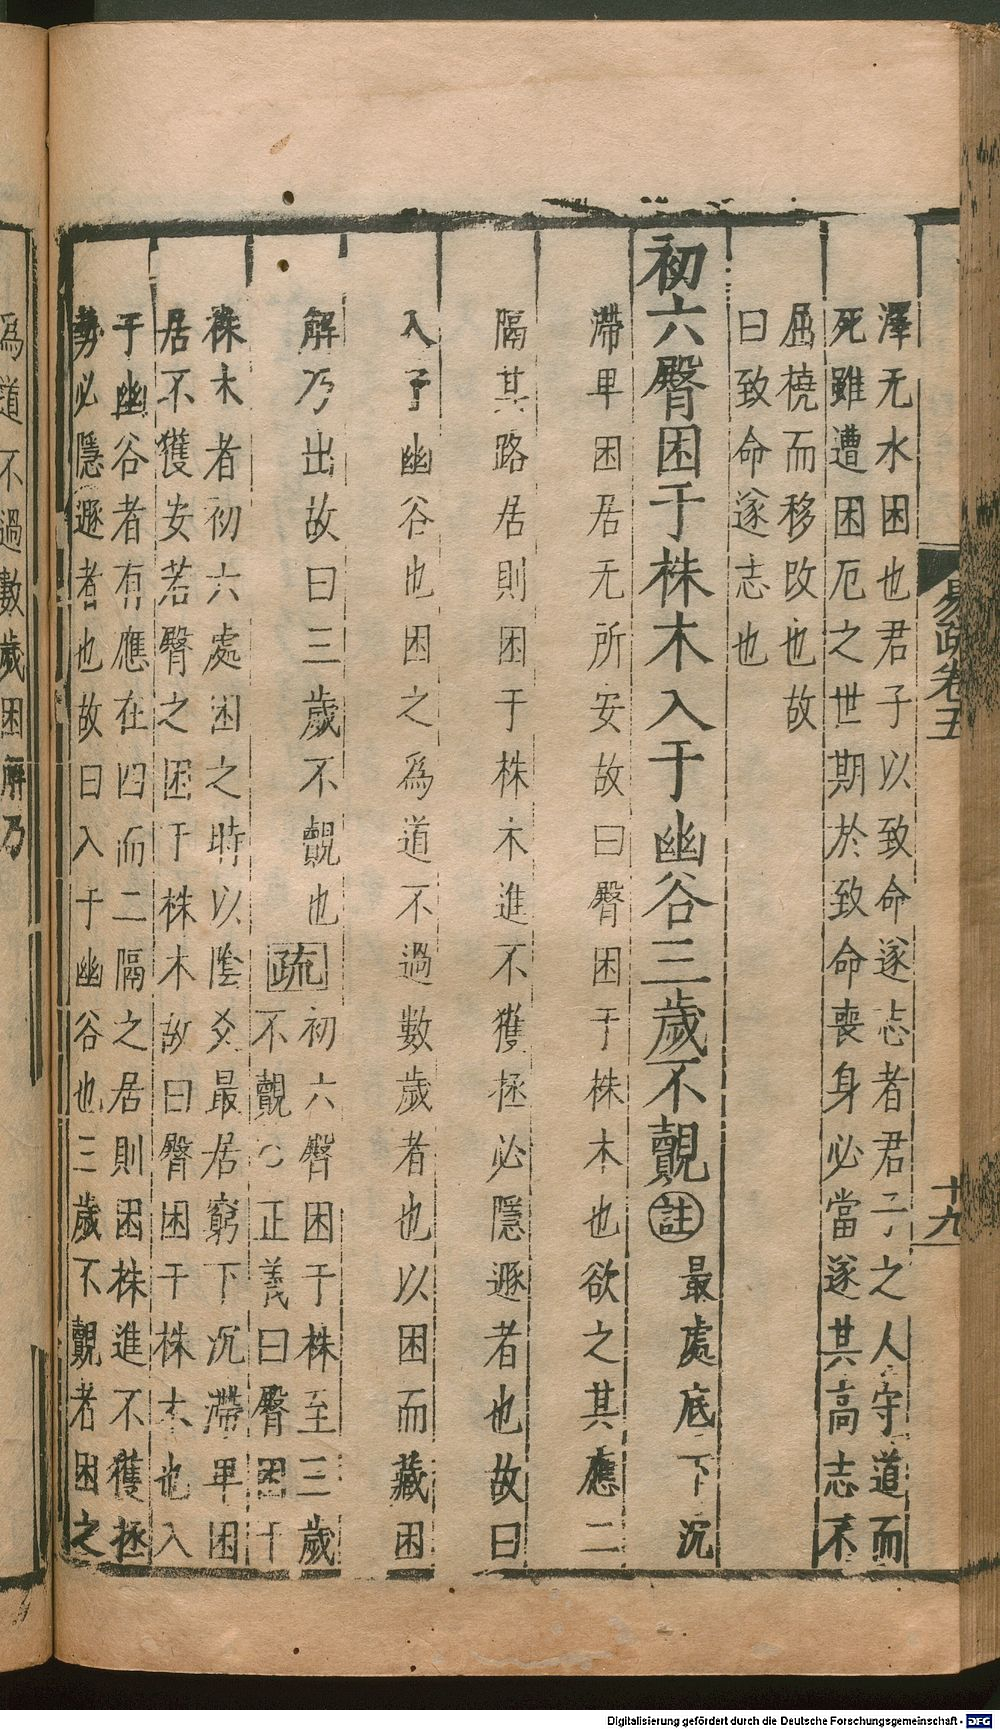 易疏卷五
十九
澤无水困也君子以致命遂志者君子之人守道而
死雖遭困厄之世期於致命喪身必當遂其高志不
屈橈而移改也故
曰致命遂志也
初六臀困于株木入于幽谷三歲不覿註最處底下沉
滯卑困居无所安故曰臀困于株木也欲之其應二
隔其路居則困于株木進不獲拯必隱遯者也故曰
入于幽谷也困之爲道不過數歲者也以困而藏困
解乃出故曰三歲不覿也疏初六臀困于株至三歲
不覿〇正義曰臀困于
株木者初六處困之時以陰爻最居窮下沉滯卑困
居不獲安若臀之困于株木故曰臀困于株木也入
于幽谷者有應在四而二隔之居則困株進不獲拯
勢必隱遯者也故曰入于幽谷也三歲不覿者困之
爲道不過數歲困解乃
Digitalisierung gefördert durch die Deutsche Forschungsgemeinschaft - DFG